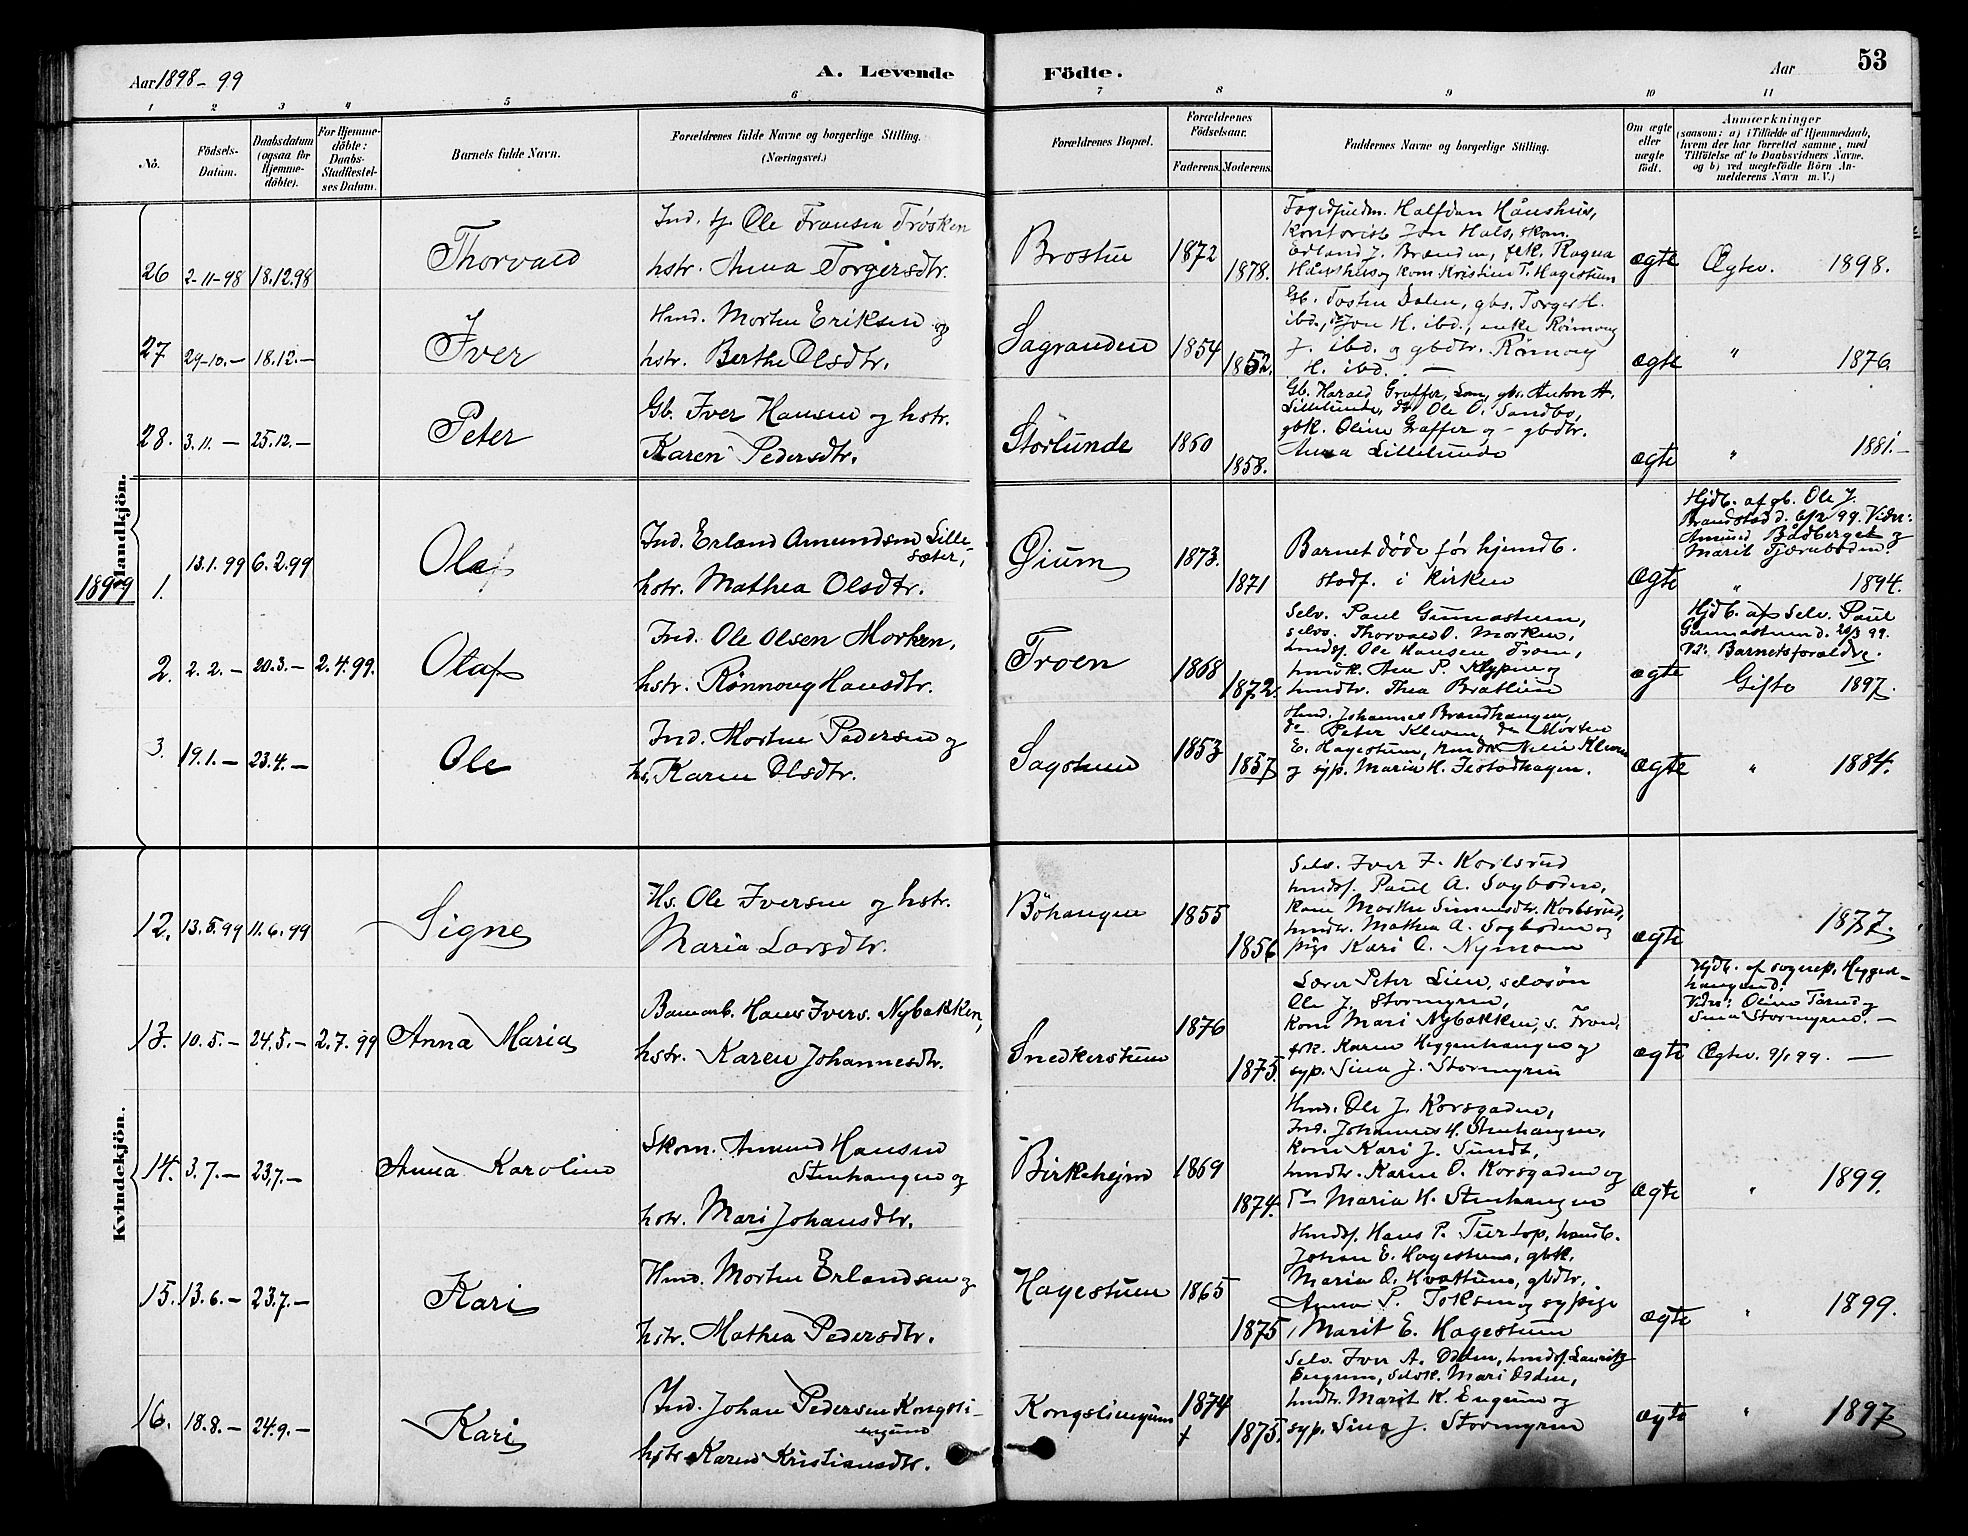 Aar 1898-99
A. Levende
Födte.
Aar
53
1 2 3 4 5 6 7 8 9 10 11
No.
Födsels-Datum.
Daabsdatum (ogsaa for Hjemme-döbte).
For Hjemme-döbte: Daabs-Stadfæstel-ses Datum.
Barnets fulde Navn.
Forældrenes fulde Navne og borgerlige Stilling. (Næringsvei.)
Forældrenes Bopæl.
Forældrenes Födselsaar.
Faderens.
Moderens.
Faddernes Navne og borgerlige Stilling.
Om ægte eller uægte födt.
Anmærkninger
(saasom: a) i Tilfælde af Hjemmedaab,
hvem der har forrettet samme, med
Tilföielse af to Daabsvidners Navne.
og b) ved uægtefödte Börn An-
melderens Navn m. V.)
Mandkjön.
26 2-11-98 18.12.98
Thorvald
Ind. tj Ole Fransen Trösken
hstr. Anna Torgersdtr.
Brostu 1872 1878.
Halfdan Hånshus,
Kontorist Jon Hals, skom.
Erland J. Brenden, frk. Ragna
Hånshus og kom Kristine T. Hagestuen
ægte
Ægtev. 1898.
27 29-10.- 18.12.-
Iver
Hmd. Morten Eriksen og
hstr. Berthe Olsdtr.
Sagranden 1854 1852.
Gb. Tosten Dalen, gbs. Torger H.
ibd., Jon H. ibd., enke Rönnoug
J. ibd. og gbdtr. Rönnoug
H. ibd. —
ægte
" 1876.
28. 3.11.- 25.12.-
Peter
Gb. Iver Hansen og hstr.
Karen Pedersdtr.
Storlunde 1850 1858.
Gb. Harald Graffer, Lom, gbs. Anton H.
Lillelunde, do Ole O. Sandbo,
gbk. Oline Graffer og - gbdtr.
Anna Lillelunde
ægte
" 1881.-
1899
1. 13.1.99 6.2.99
Olaf
Ind. Erland Amundsen Lille-
sæter,
hstr. Mathea Olsdtr.
Öium 1873. 1871
Barnet döde för hjemdb.
stadf. i kirken
ægte
Hjdb. af gb. Ole J.
Brandstad d. 6/2 99. Vidn:
Amund Bådberget og
Marit Tjernboden.
" 1894.
2. 2.2.- 20.3.- 2.4.99.
Olaf
Ind. Ole Olsen Morken,
hstr. Rönnoug Hansdtr.
Troen 1868 1872.
Selv. Paul Gunnastuen,
selvs. Thorvald O. Morken,
hmdsf. Ole Hansen Troen,
hmdk. Ane P. Klypen og
hmdtr. Thea Bratlien
ægte
Hjdb. af Selv. Paul
Gunnastuen d. 20/3 99.
Vid: Barnets forældre.
Gifte 1897.
3. 19.1.- 23.4.-
Ole
Ind. Morten Pedersen og
hs. Karen Olsdtr.
Sagstuen 1853 1857
Hmd. Johannes Brandhaugen,
do Peter Kleven, do Morten
E. Hagestuen, hmdk Nelie Kleven
og syp. Maria H.
ægte
" 1884.
Kvindekjön.
12. 13.5.99 11.6.99
Signe
Hs. Ole Iversen og hstr.
Maria Larsdtr.
Böhaugen 1855 1856
Selv. Iver I. Korlsrud
hmdsf. Paul A. Sagboden,
kone Marthe Simensdtr. Korlsrud,
hmdtr. Mathea A. Sagboden og
pige Kari O. Nymoen
ægte
1877.
13. 10.5.- 24.5.- 2.7.99
Anna Maria
Baanarb. Hans Ivers. Nybakken,
hstr. Karen Johannesdtr.
Snedkerstuen 1876 1875.
Lærer Peter Lien, selvsön
Ole J. Stormyren,
kom Mari Nybakken, s. Fron,
frk. Karen Heggenhaugen og
syp. Sina J. Stormyren
ægte
Hjdb. af sognep. Heggen-
haugen d.
Vidn: Oline Tårud og
Sina Stormyren. —
Ægtev. 9/1 99. —
14. 3.7.- 23.7.-
Anna Karoline
Skom. Amund Hansen
Stenhaugen og
hstr. Mari Johansdtr.
Birkehejm 1869 1874.
Hmd. Ole J. Korsgaden,
Ind. Johannes H. Stenhaugen,
kone Kari J. Sundt,
hmdtr. Karen O. Korsgaden og
do Maria H. Stenhaugen
ægte
" 1899.
15. 13.6.- 23.7.-
Kari
Hmd. Morten Erlandsen og
hstr. Mathea Pedersdtr.
Hagestuen 1865 1875
Hmdsf. Hans P. Turtop, handb.
Johan E. Hagestuen, gbk.
Maria O. Hvattum, gbdtr.
Anna P. Toksen og sypige
Marit E. Hagestuen
ægte
" 1899.
16. 18.8.- 24.9.-
Kari
Ind. Johan Pedersen Kongsli-
engene
hstr. Karen Kristiansdtr.
Kongsliengen 1874 + 1875.
Selv. Iver A. Odden, hmdsf. Lauritz
Engum, selvk. Mari Odden,
hmdtr. Marit K. Engum og
syp. Sina J. Stormyren
ægte
" 1897